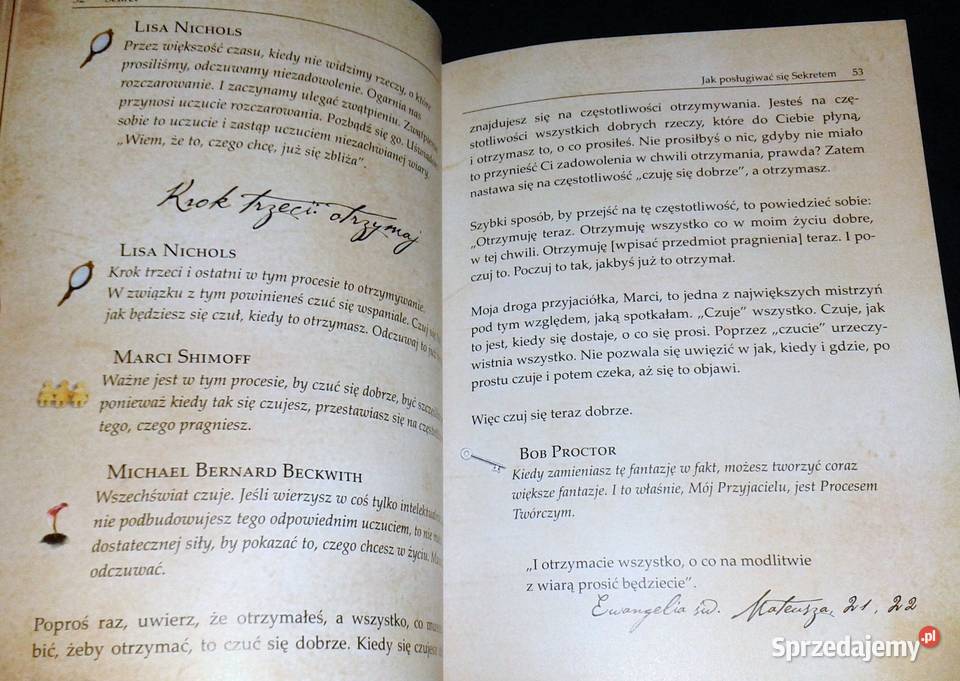 52 Sekret
LISA NICHOLS
Przez większość czasu, kiedy nie widzimy rzeczy, o które
prosiliśmy, odczuwamy niezadowolenie. Ogarnia nas
rozczarowanie. I zaczynamy ulegać zwątpieniu. Zwątpienie
przynosi uczucie rozczarowania. Pozbądź się go. Uświadom
sobie to uczucie i zastąp uczuciem niezachwianej wiary.
„Wiem, że to, czego chcę, już się zbliża”.
Krok trzeci: otrzymaj
LISA NICHOLS
Krok trzeci i ostatni w tym procesie to otrzymywanie.
W związku z tym powinieneś czuć się wspaniale. Czuj się
jak będziesz się czuł, kiedy to otrzymasz. Odczuwaj to już
MARCI SHIMOFF
Ważne jest w tym procesie, by czuć się dobrze, być
ponieważ kiedy tak się czujesz, przestawiasz się na
tego, czego pragniesz.
MICHAEL BERNARD BECKWITH
Wszechświat czuje. Jeśli wierzysz w coś tylko
nie podbudowujesz tego odpowiednim uczuciem, to nie
dostatecznej siły, by pokazać to, czego chcesz w życiu.
odczuwać.
Poproś raz, uwierz, że otrzymałeś, a wszystko, co
bić, żeby otrzymać, to czuć się dobrze. Kiedy się czujesz
Jak posługiwać się Sekretem 53
znajdujesz się na częstotliwości otrzymywania. Jesteś na czę-
stotliwości wszystkich dobrych rzeczy, które do Ciebie płyną,
i otrzymasz to, o co prosiłeś. Nie prosiłbyś o nic, gdyby nie miało
to przynieść Ci zadowolenia w chwili otrzymania, prawda? Zatem
nastawa się na częstotliwość „czuję się dobrze”, a otrzymasz.
Szybki sposób, by przejść na tę częstotliwość, to powiedzieć sobie:
„Otrzymuję teraz. Otrzymuję wszystko co w moim życiu dobre,
w tej chwili. Otrzymuję [wpisać przedmiot pragnienia] teraz. I po-
czuj to. Poczuj to tak, jakbyś już to otrzymał.
Moja droga przyjaciółka, Marci, to jedna z największych mistrzyń
pod tym względem, jaką spotkałam. „Czuje” wszystko. Czuje, jak
to jest, kiedy się dostaje, o co się prosi. Poprzez „czucie” urzeczy-
wistnia wszystko. Nie pozwala się uwięzić w jak, kiedy i gdzie, po
prostu czuje i potem czeka, aż się to objawi.
Więc czuj się teraz dobrze.
BOB PROCTOR
Kiedy zamieniasz tę fantazję w fakt, możesz tworzyć coraz
większe fantazje. I to właśnie, Mój Przyjacielu, jest Procesem
Twórczym.
„I otrzymacie wszystko, o co na modlitwie
z wiarą prosić będziecie”.
Ewangelia św. Mateusza, 21, 22
Sprzedajemy.pl